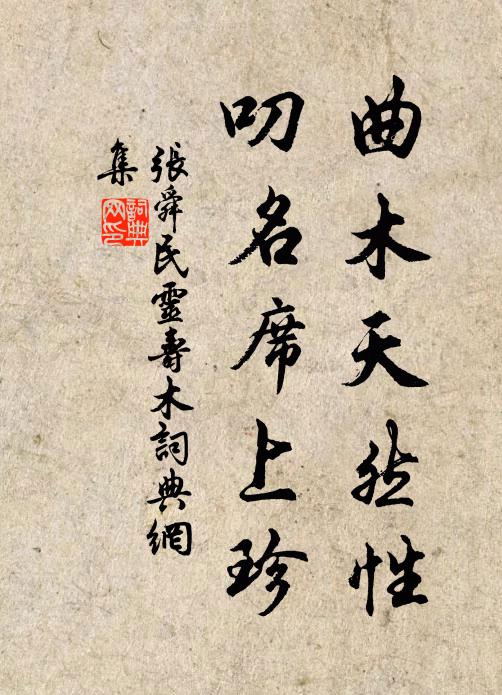 曲木天然性
叨名席上珍
張舜民靈壽木詞典網
集
詞典
网印